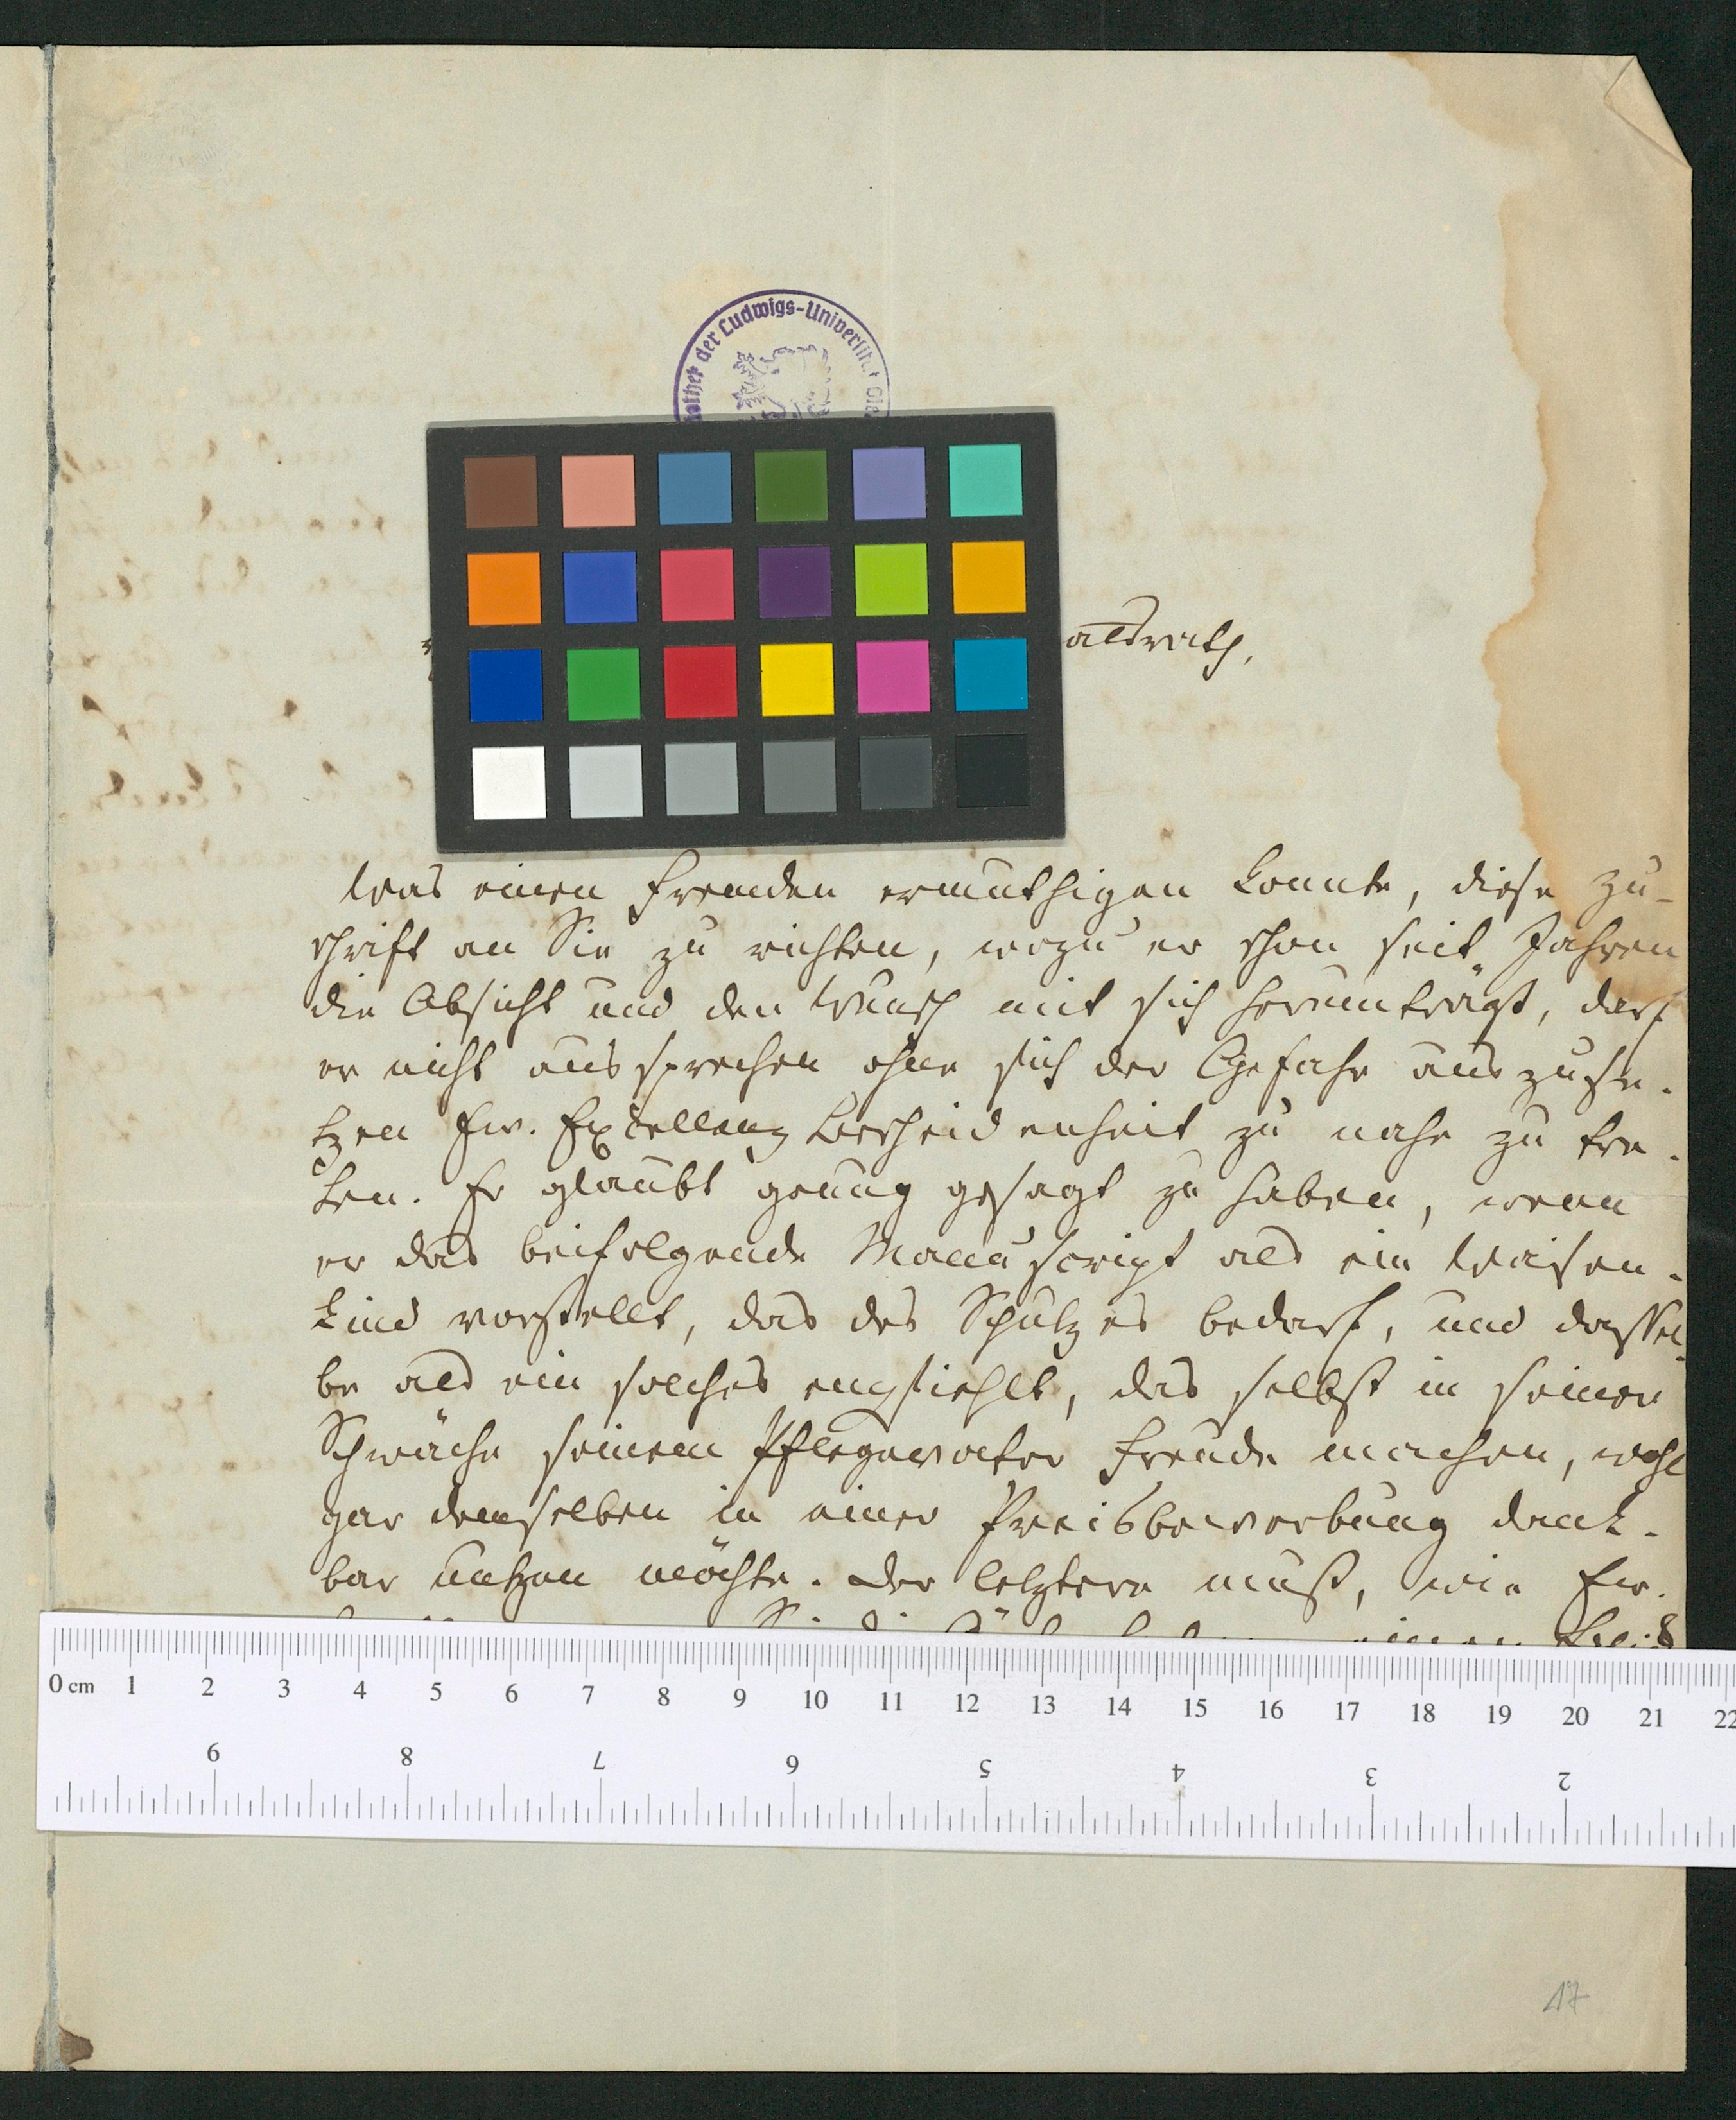 othek der Ludwigs-Universität Gie
aatsrath,
Was einen Fremden ermuthigen konnte, diese Zu-
schrift an Sie zu richten, wozu er schon seit Jahren
die Absicht und den Wunsch mit sich herumträgt, darf
er nicht aussprechen ohne sich der Gefahr auszuse-
tzen Ew. Excellenz Bescheidenheit zu nahe zu tre-
ten. Er glaubt genug gesagt zu haben, wenn
er das beifolgende Manuscript als ein Waisen-
kind vorstellt, das des Schutzes bedarf, und dassel-
be als ein solches empfiehlt, das selbst in seiner
Schwäche seinem Pflegevater Freude machen, wohl
gar demselben in einer Preisbewerbung dank-
bar nutzen möchte. Der letztere muß, wie Ew.
einen
0 cm 1 2 3 4 5 6 7 8 9 10 11 12 13 14 15 16 17 18 19 20 21 22
9 8 7 6 5 4 3 2
17